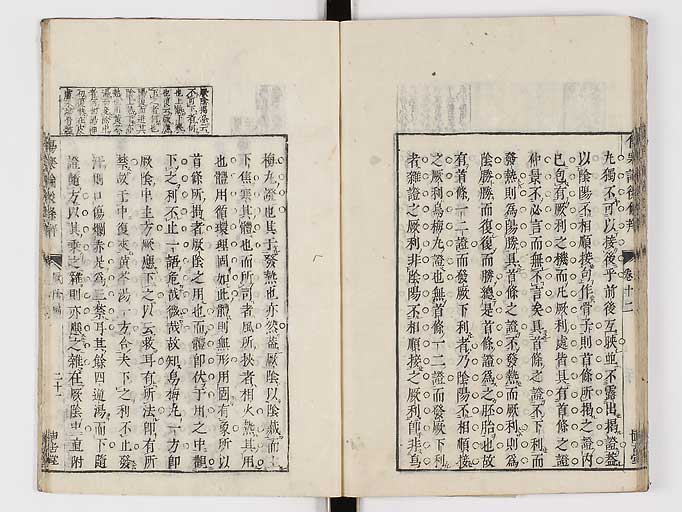 九獨不可以接後乎前後互映並不露出揭證蓋
以陰陽不相順接句作骨子則首條所揭之證內
已包有厥利之機而凡厥利處皆具有首條之證
仲景不必言而無不言矣具首條之證不下利而
發熱則為陽勝具首條之證不發熱而厥利則為
陰勝勝而復復而勝總是首條證為之胚胎也故
有首條一二證而發厥下利者乃陰陽不相順接
之厥利為梅九證也無首條一二證而發厥下利
者雜證之厥利非陰陽不相順接之厥利即非烏
卷十二
梅九證也其于發熱也亦然蓋厥陰以陰藏而主
下焦寒其體也而所司者風所挾者相火熱其用
也體用循環理固如此體則無形用固有象所以
首條所揭者厥陰之用也而體即伏于用之中觀
下之利不止一語危哉微哉故知烏梅九一方即
厥陰中主方厥應下之以云救耳有所法即有所
禁故于中復夾黃芩湯一方合夫下之利不止發
汗則口傷爛赤是為三禁耳其餘四逆湯而下隨
證隨方以其乘之雜則亦應之雜在厥陰中直附
厥陰編
二十一